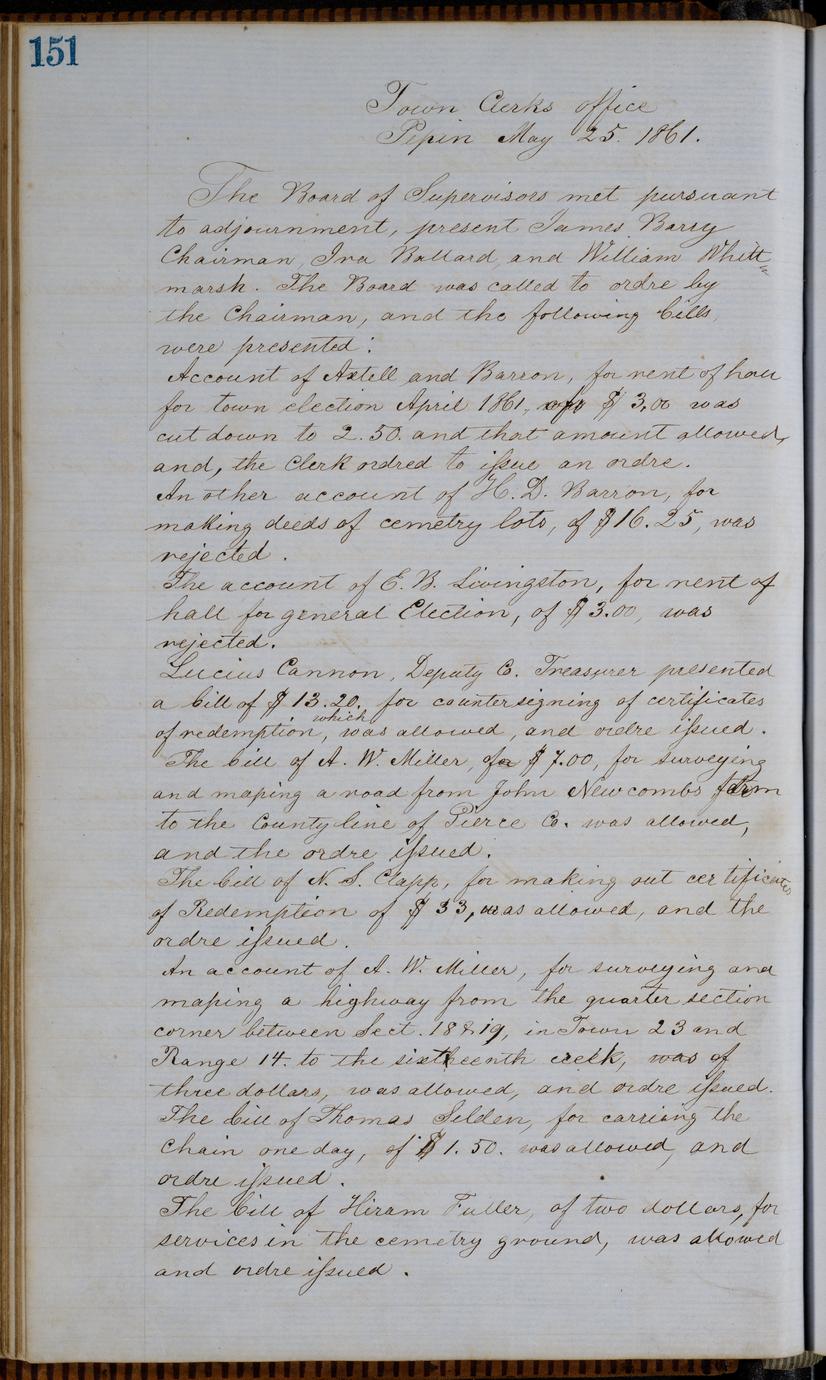 151
Town Clerks office
Pepin May 25. 1861.
The Board of Supervisors met pursuant
to adjournment, present James Barry
Chairman, Ira Ballard, and William Whitt=
marsh. The Board was called to ordre by
the Chairman, and the following bills,
were presented:
Account of Axtell and Barron, for rent of hall
for town election April 1861, $ 3,00 was
cut down to 2.50. and that amount allowed,
and, the Clerk ordred to issue an ordre.
An other account of H. D. Barron, for
making deeds of cemetry lots, of $16.25, was
rejected.
The account of E. B. Livingston, for rent of
hall for general Election, of $3.00, was
rejected.
Lucius Cannon, Deputy C. Treasurer presented
a bill of $13.20. for countersigning of certificates
of redemption, which was allowed, and ordre issued.
The bill of A. W. Miller, of $7.00, for surveying
and maping a road from John Newcombs farm
to the County line of Pierce Co. was allowed,
and the ordre issued.
The bill of N. S. Clapp, for making out certificates
of Redemption of $33, was allowed, and the
ordre issued.
An account of A. W. Miller, for surveying and
maping a highway from the quarter section
corner between Sect. 18 & 19, in Town 23 and
Range 14. to the sixtheenth creek, was of
three dollars, was allowed, and ordre issued.
The bill of Thomas Selden, for carriing the
chain one day, of $1.50. was allowed, and
ordre issued.
The bill of Hiram Fuller, of two dollars, for
services in the cemetry ground, was allowed
and ordre issued.